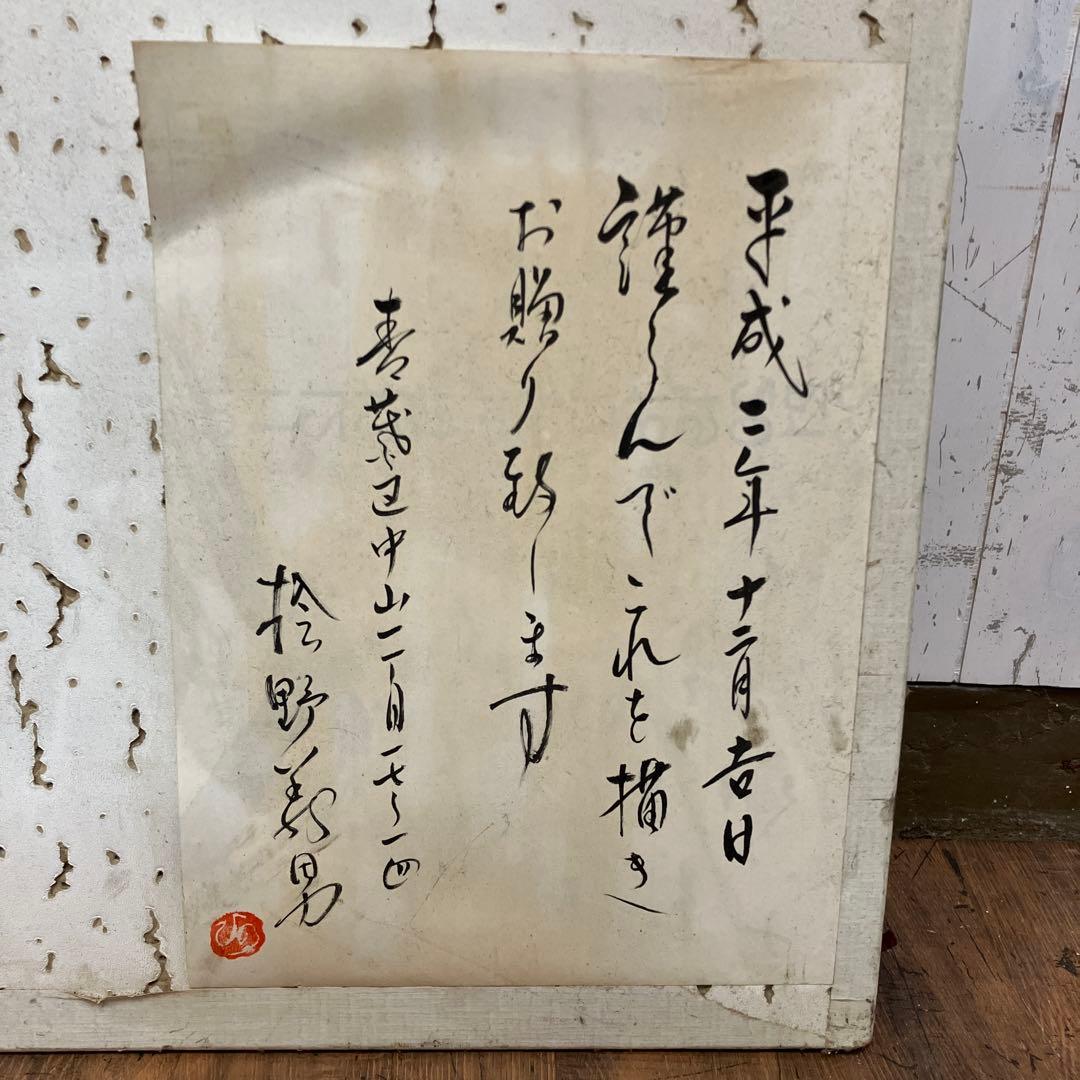 平成二年十二月吉日
謹しんでこれを描き
お贈り致します
青葉区中山二丁目一七ノ一四
桧野義男